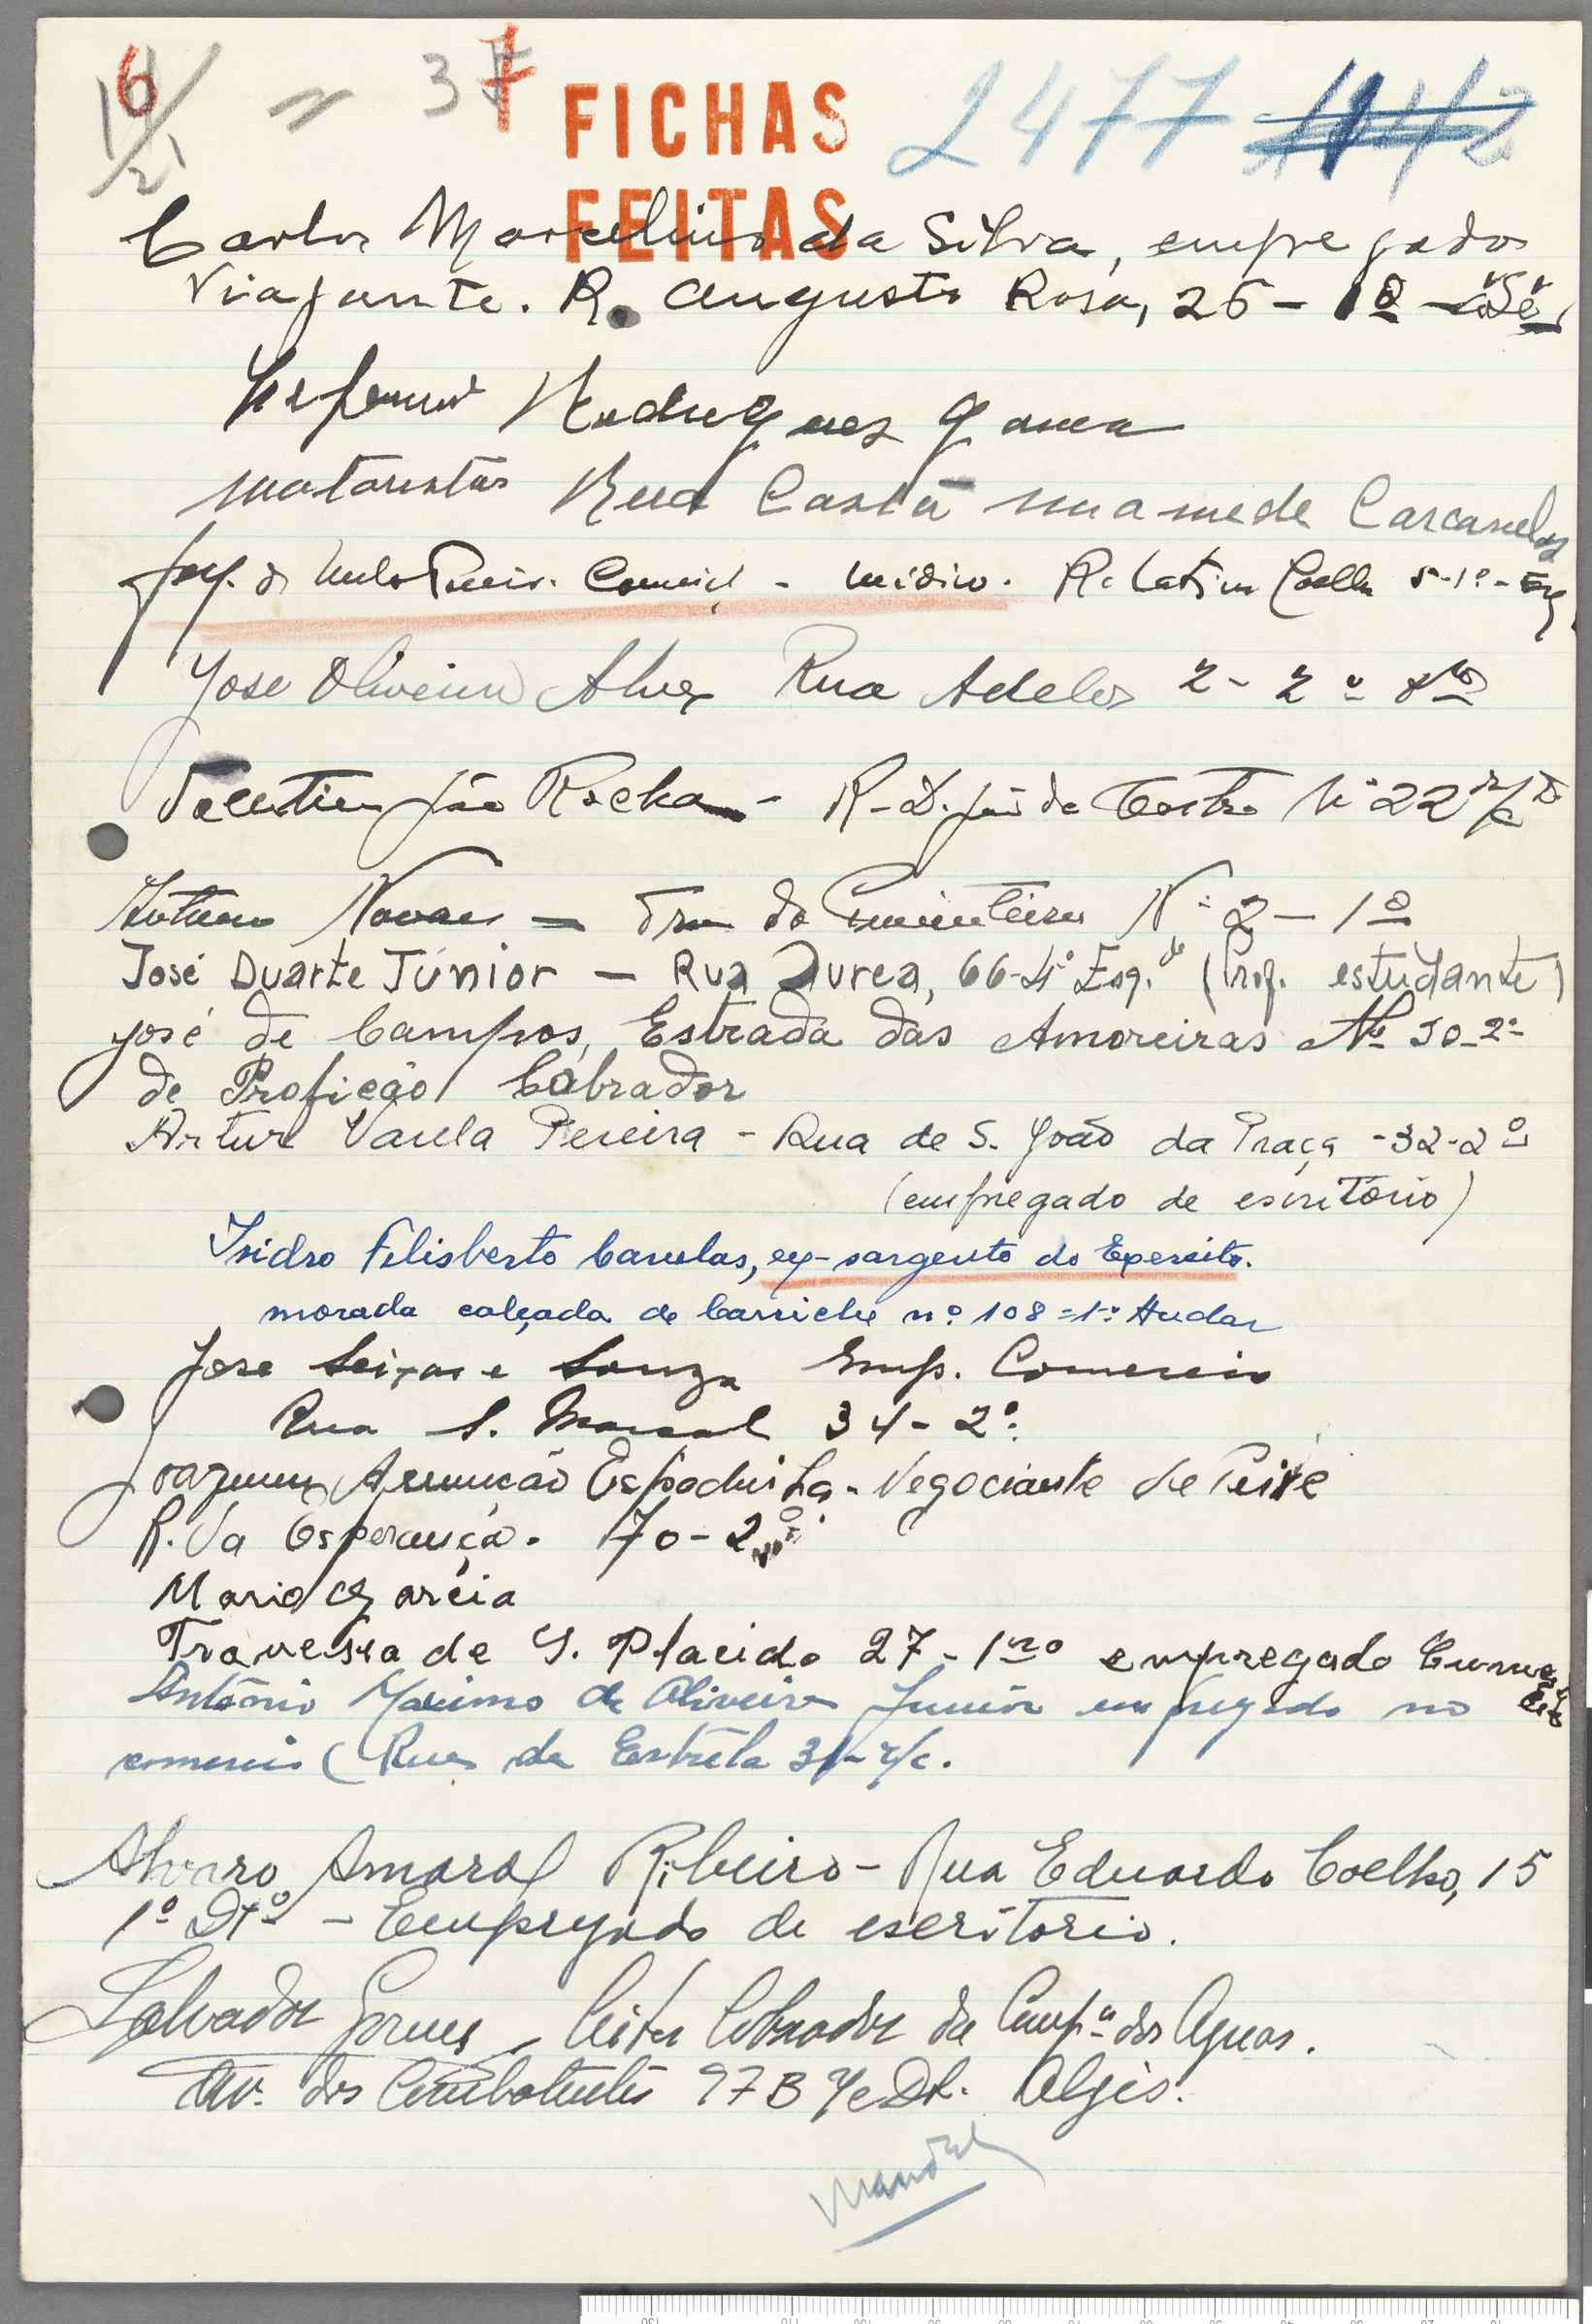 16/21 = 37
FICHAS
FEITAS
2477
Carlos Marcelino da Silva, empregado
Viajante. R. Augusto Rosa, 26-1º "Sé"
Rodrigues Gama
motorista Rua Mamede Carcavelos
médico. R. Latino Coelho 5-1º-Esq.
Jose Oliveira Alves Rua Adelos 2-2º
João Rocha - R. D. João de Castro Nº 22 r/c
Novaes = do Nº 2-1º
José Duarte Júnior - Rua Áurea, 66-4º Esq. (Prof. estudante)
José de Campos, Estrada das Amoreiras Nº 30-2º
de Profição Cobrador
Artur Varela Pereira - Rua de S. João da Praça -32-2º
(empregado de escritório)
Isidro Filisberto Canelas, ex-sargento do Exercito.
morada calçada de Carriche nº 108=1º Andar
Jose Seixas e Souza Emp. Comercio
Rua S. Marçal 34-2º
Joaquim Assunção Espadinha - Negociante de Peixe
R. da Esperança. 70-2º
Mario Garcia
Travessa de S. Placido 27-1º empregado
António Maximo de Oliveira Junior empregado no
comercio (Rua da Estrêla 31-r/c.
Alvaro Amaral Ribeiro - Rua Eduardo Coelho, 15
1º Dtº - Empregado de escritório.
Salvador Gomes, Leitor Cobrador da Compª das Aguas.
Av. dos Combatentes 97B r/c Dt. Algés.